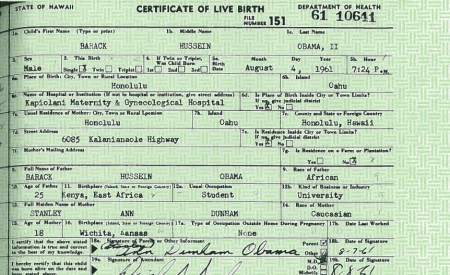 STATE OF HAWAII CERTIFICATE OF LIVE BIRTH DEPARTMENT OF HEALTH
FILE NUMBER 151 61 10641
1a. Child's First Name (Type or print) 1b. Middle Name 1c. Last Name
BARACK HUSSEIN OBAMA, II
2. Sex 3. This Birth 4. If Twin or Triplet, Was Child Born 5a. Birth Date Month Day Year 5b. Hour
Male Single Twin Triplet 1st 2nd 3rd August 4, 1961 7:24 P.M.
6a. Place of Birth: City, Town or Rural Location 6b. Island
Honolulu Oahu
6c. Name of Hospital or Institution (If not in hospital or institution, give street address) 6d. Is Place of Birth Inside City or Town Limits? If no, give judicial district
Kapiolani Maternity & Gynecological Hospital Yes X No
7a. Usual Residence of Mother: City, Town or Rural Location 7b. Island 7c. County and State or Foreign Country
Honolulu Oahu Honolulu, Hawaii
7d. Street Address 7e. Is Residence Inside City or Town Limits? If no, give judicial district
6085 Kalanianaole Highway Yes X No
7f. Mother's Mailing Address 7g. Is Residence on a Farm or Plantation?
Yes No X
8. Full Name of Father 9. Race of Father
BARACK HUSSEIN OBAMA African
10. Age of Father 11. Birthplace (Island, State or Foreign Country) 12a. Usual Occupation 12b. Kind of Business or Industry
25 Kenya, East Africa Student University
13. Full Maiden Name of Mother 14. Race of Mother
STANLEY ANN DUNHAM Caucasian
15. Age of Mother 16. Birthplace (Island, State or Foreign Country) 17a. Type of Occupation Outside Home During Pregnancy 17b. Date Last Worked
18 Wichita, Kansas None
I certify that the above stated information is true and correct to the best of my knowledge. 18a. Signature of Parent or Other Informant Parent 18b. Date of Signature
Ann Dunham Obama Other 8-7-61
I hereby certify that this child was born alive on the date and 19a. Signature of Attendant M.D. 19b. Date of Signature
D.O.